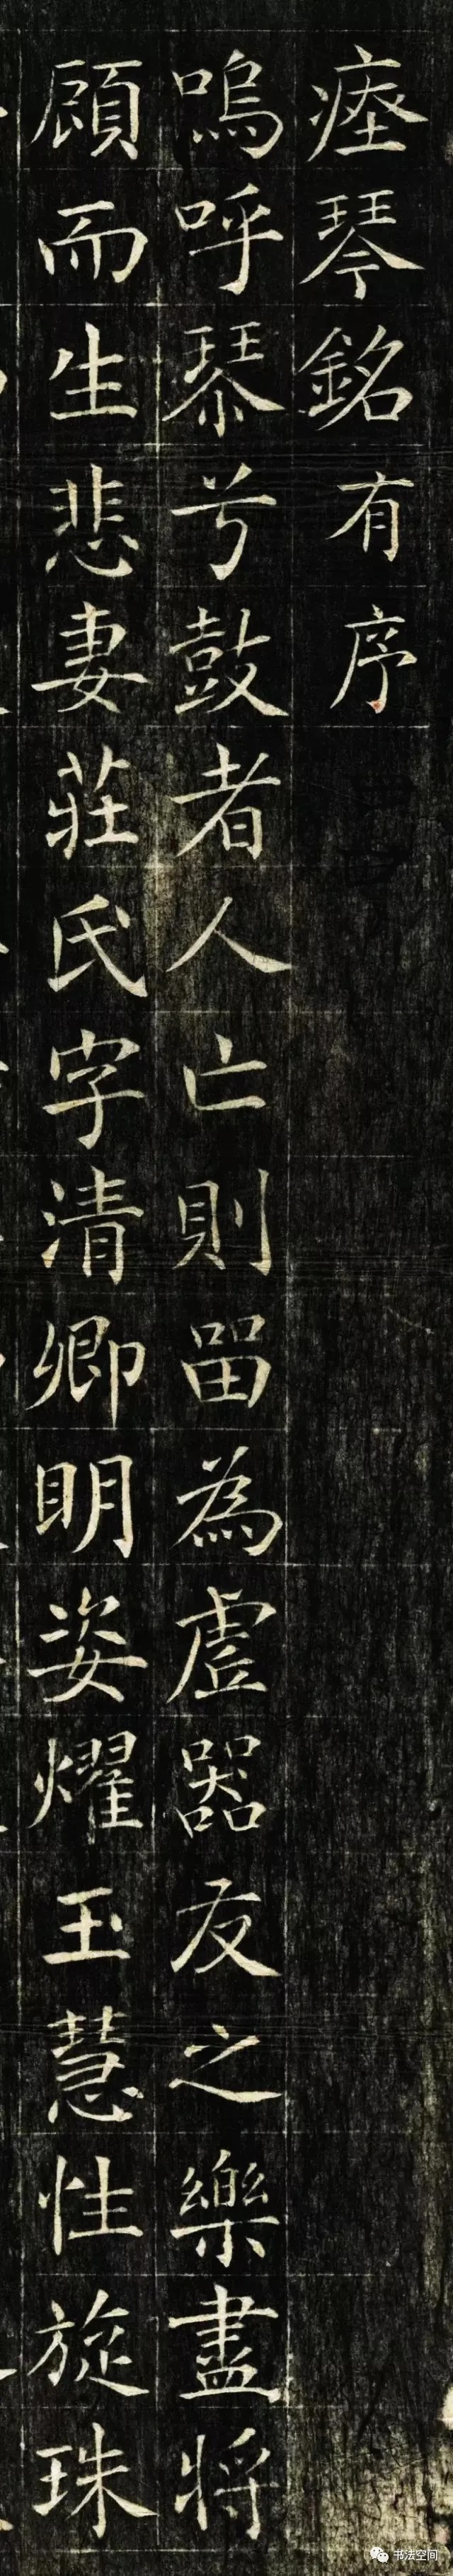 瘞琴銘有序
嗚呼琹兮鼓者人亡則留為虛器友之樂盡將
顧而生悲妻莊氏字清卿明姿耀玉慧性旋珠
书法空间